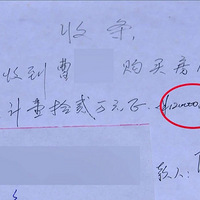 收条
收到曹 购买房
计壹拾贰万元正. ¥120000
款人: